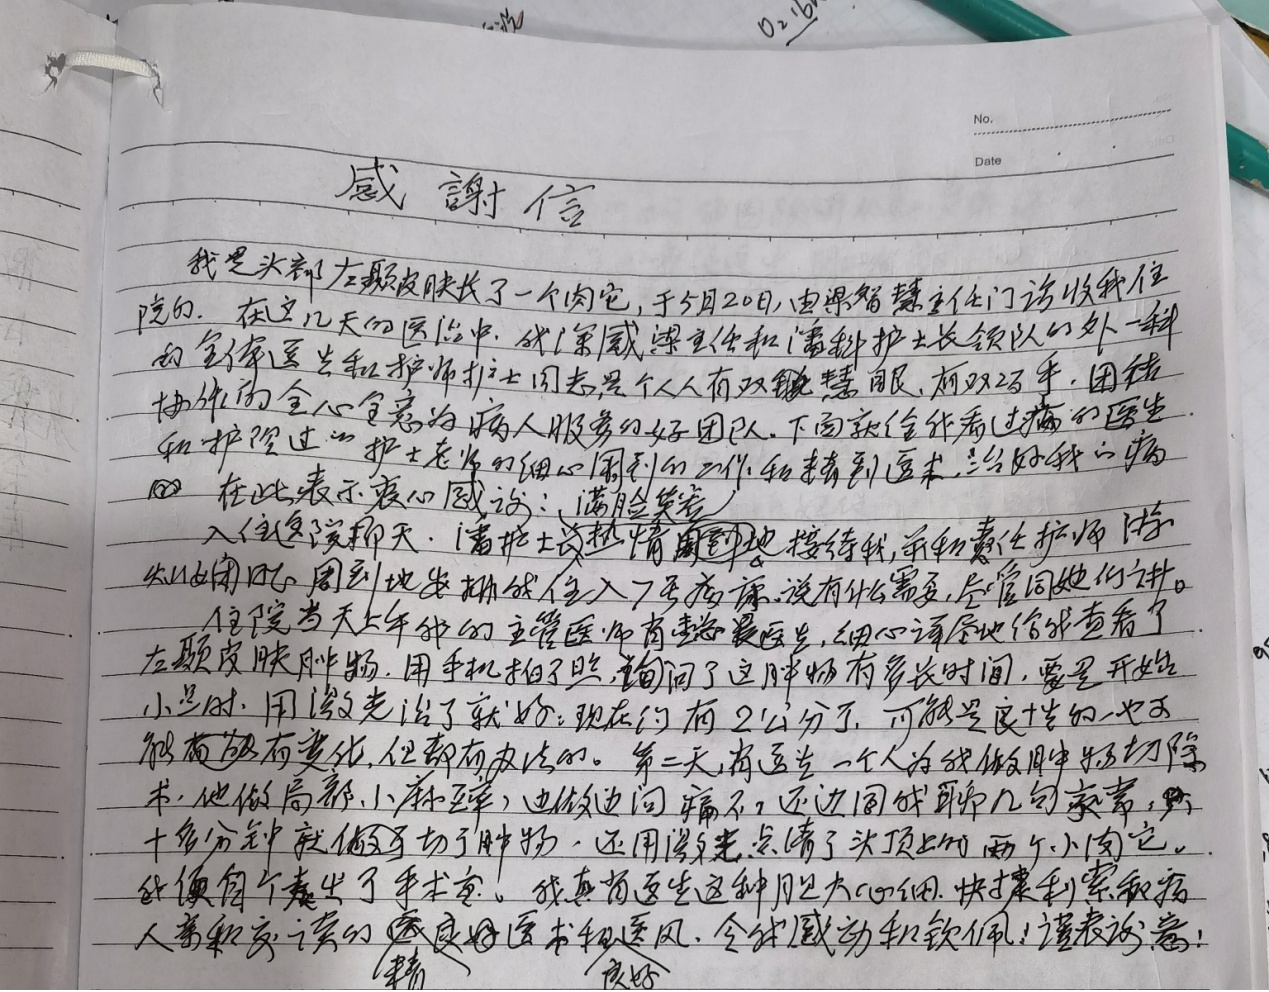 No.
Date
感謝信
我是头部左颞皮肤长了一个肉它,于5月20日,由梁智慧主任门诊收我住
院的.在这几天的医治中.我深感梁主任和潘科护士长领队的外一科
的全体医生和护师护士同志是个人人有双慧眼.有双巧手.团结
协作的全心全意为病人服务的好团队.下面就给我看过病的医生
和护理过的护士老师的细心周到的工作.和精到医术.治好我的病
在此表示衷心感谢:满脸笑容
入住医院那天.潘护士长热情地接待我,并和责任护师
周到地安排我住入7号病床.说有什么需要,尽管同她们讲。
住院当天上午我的主管医师肖医生,细心详尽地给我查看了
左颞皮肤肿物.用手机拍了照,询问了这肿物有多长时间.要是开始
小点时.用激光治了就好.现在约有2公分了.可能是良性的.也可
能有变化.但都有办法的。第二天,肖医生一个人为我做肿物切除
术.他做局部小麻醉,边做边问痛不,还边同我聊几句家常,
十多分钟就做切了肿物.还用激光点清了头顶上的两个小肉它。
我便自个走出了手术室!我真肖医生这种胆大心细.快捷利索和病
人亲和交谈的医术和医风.令我感动和钦佩!谨表谢意!
精 良好